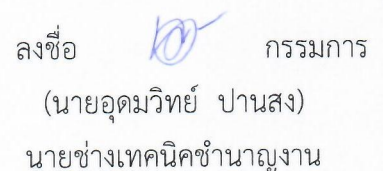 ลงชื่อ กรรมการ
(นายอุดมวิทย์ ปานสง)
นายช่างเทคนิคชำนาญงาน